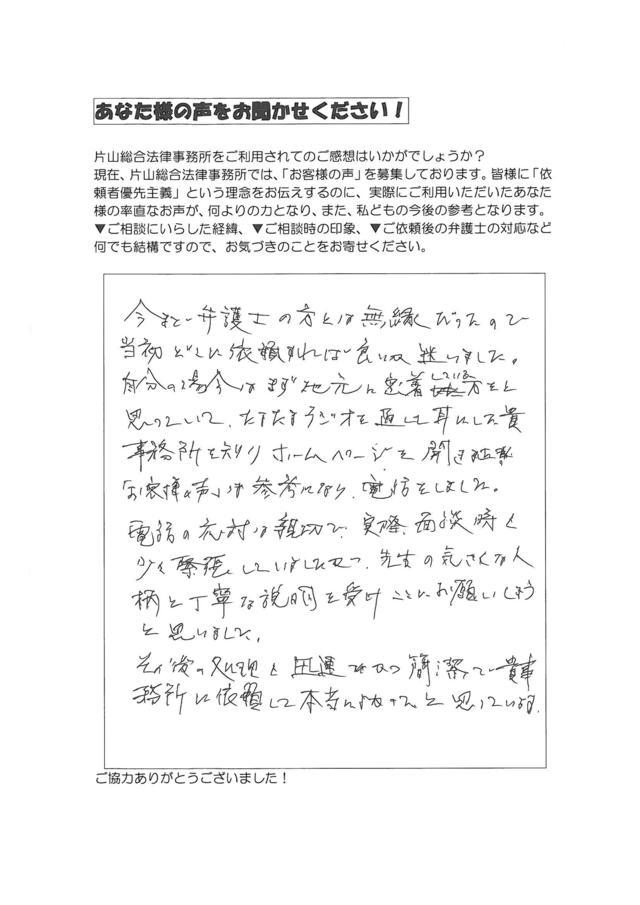 あなた様の声をお聞かせください！
片山総合法律事務所をご利用されてのご感想はいかがでしょうか？
現在、片山総合法律事務所では、「お客様の声」を募集しております。皆様に「依
頼者優先主義」という理念をお伝えするのに、実際にご利用いただいたあなた
様の率直なお声が、何よりの力となり、また、私どもの今後の参考となります。
▼ご相談にいらした経緯、▼ご相談時の印象、▼ご依頼後の弁護士の対応など
何でも結構ですので、お気づきのことをお寄せください。
今まで弁護士の方とは無縁だったので
当初どこに依頼すれば良いか迷いました。
自分の場合はまず地元に密着している方をと
思っていて、たまたまラジオを通して耳にした貴
事務所を知りホームページを開き
「お客様の声」は参考になり、電話をしました。
電話の応対は親切で、実際、面談時も
少々緊張していましたが、先生の気さくな人
柄と丁寧な説明を受けことにお願いしよう
と思いました。
その後の処理も迅速でかつ簡潔で貴事
務所に依頼して本当によかったと思っている。
ご協力ありがとうございました！